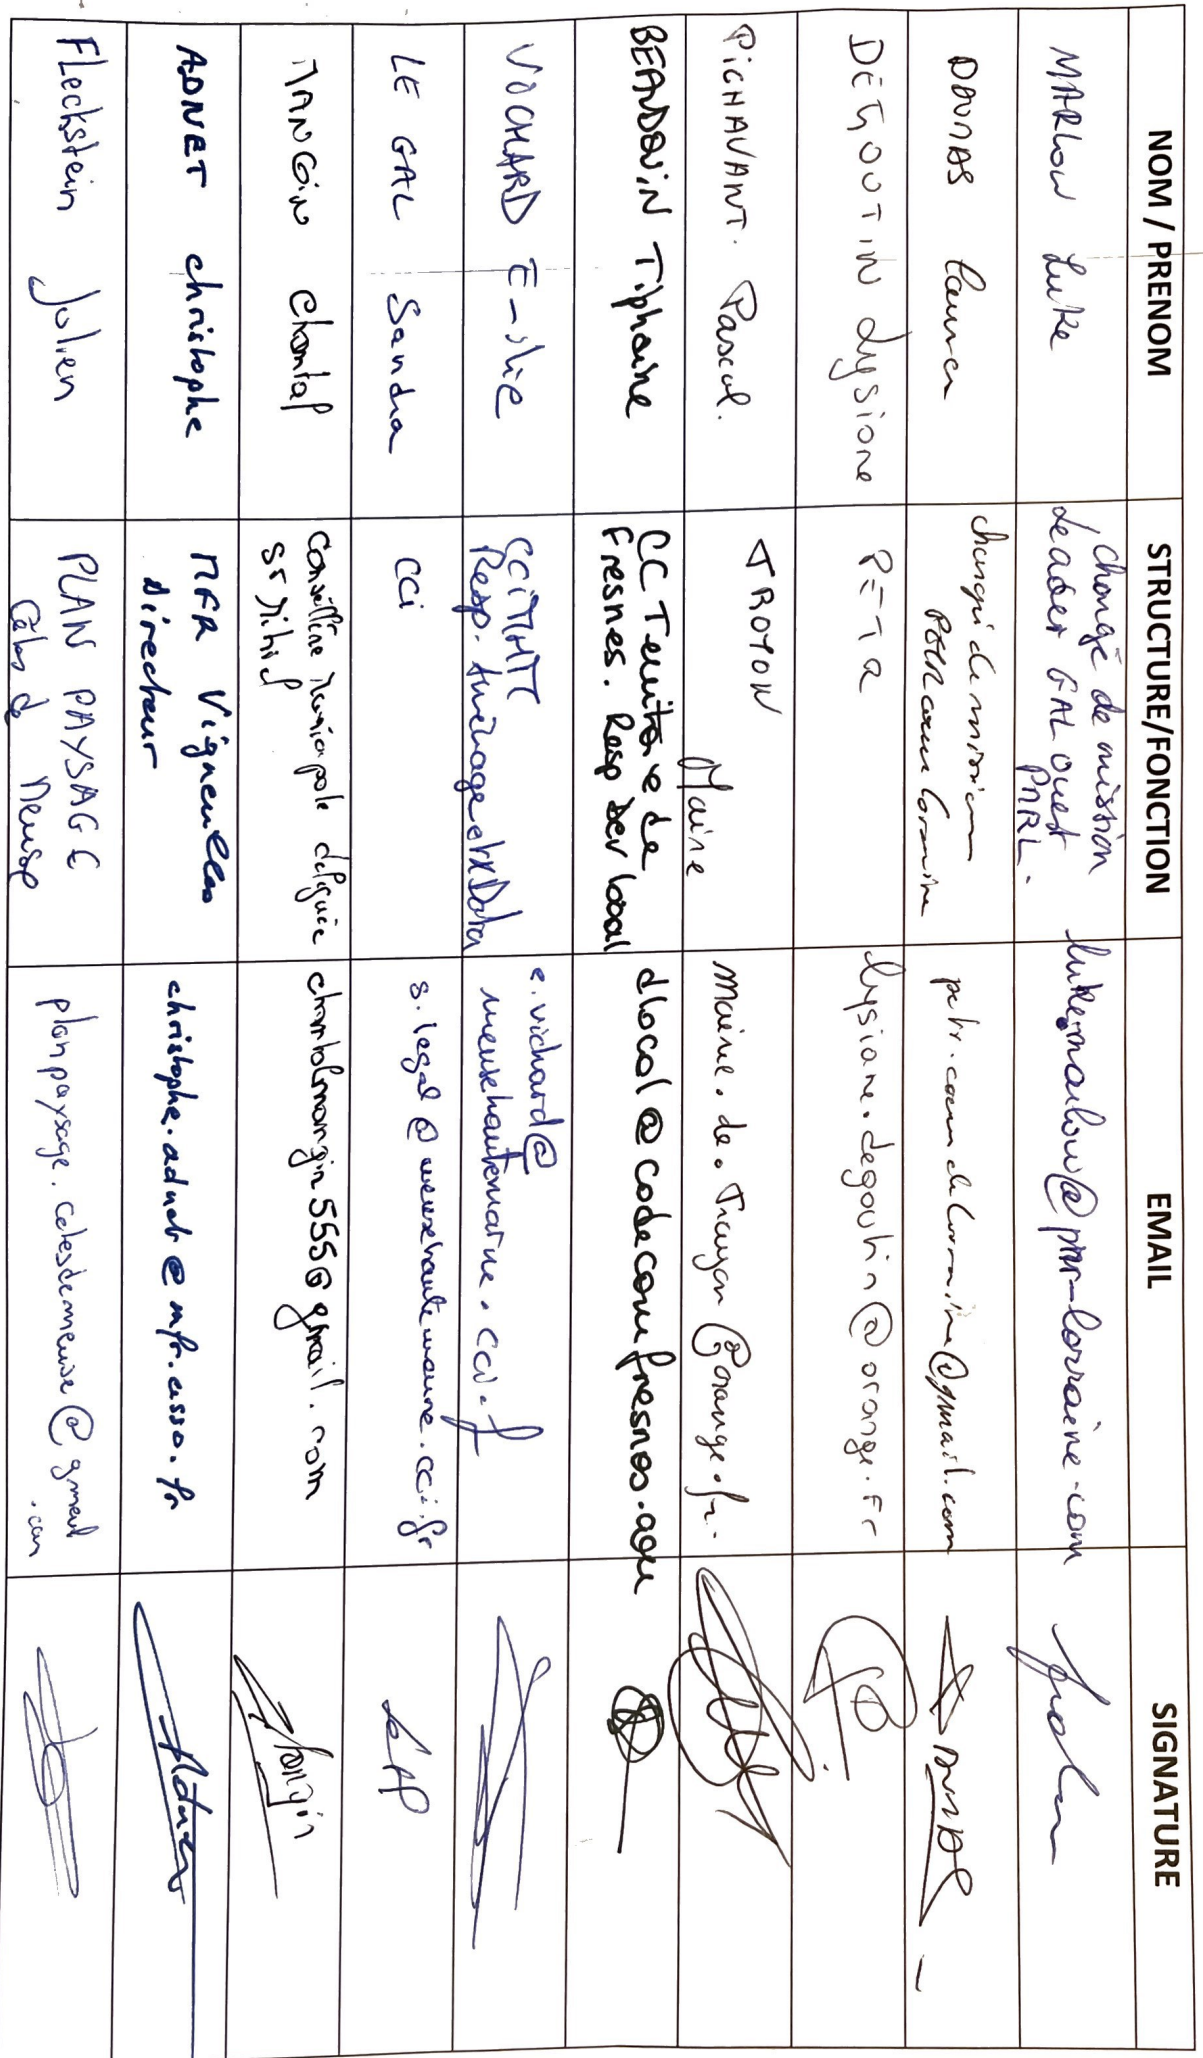 NOM / PRENOM STRUCTURE/FONCTION EMAIL SIGNATURE
MARLOW Luke
chargé de mission
Leader GAL ouest
PNRL.
luke.marlow@pnr-lorraine.com
DAUMAS Laura
chargée de mission
PETR coeur Lorraine
petr.coeurdelorraine@gmail.com
DUMAS
DEGOUTIN Lysiane
PETR
lysiane.degoutin@orange.fr
PICHAVANT. Pascal.
TROYON
Maire
mairie.de.Troyon@orange.fr.
BEAUDOIN Tiphaine
CC Territoire de
Fresnes. Resp Dev local
dlocal@codecomfresnes.com
VICHARD Emilie
CCIMHM
Resp. Aménagement & Data
e.vichard@
meusehautemarne.cci.f
LE GAL Sandra
CCI
s.legal@meusehautemarne.cci.fr
MANGIN Chantal
Conseillère municipale déléguée
St Mihiel
chantalmangin555@gmail.com
Mangin
ADNET christophe
MFR Vigneulles
Directeur
christophe.adnet@mfr.asso.fr
Adnet
Fleckstein Julien
PLAN PAYSAGE
Côtes de Meuse
planpaysage.cotesdemeuse@gmail
.com